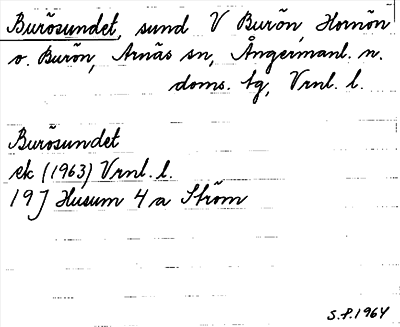 Burösundet, sund V Burön, Hornön
o. Burön, Arnäs sn, Ångermanl. n.
doms. tg, Vrnl. l.
Burösundet
ek (1963) Vrnl. l.
19J Husum 4 a Ström
S.P. 1964